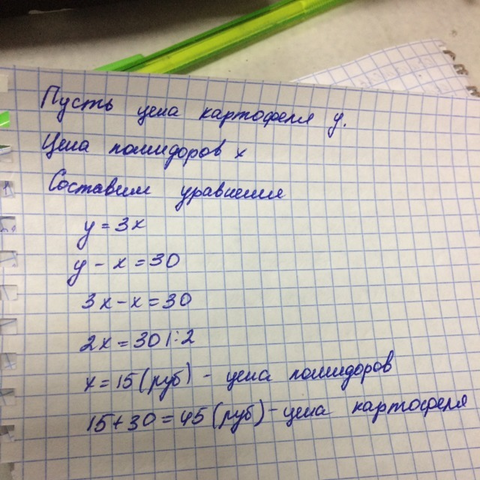 Пусть цена картофеля y.
Цена помидоров x
Составим уравнения
y = 3x
y - x = 30
3x - x = 30
2x = 30 | : 2
x = 15 (руб) - цена помидоров
15 + 30 = 45 (руб) - цена картофеля